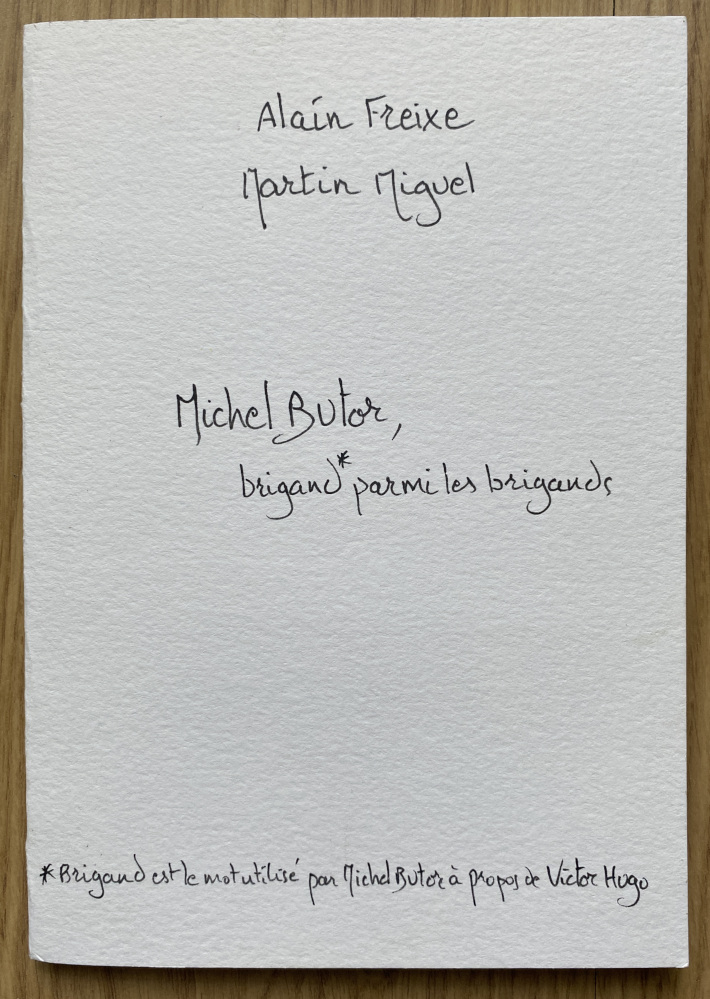 Alain Freixe
Martin Miguel
Michel Butor,
brigand* parmi les brigands
*Brigand est le mot utilisé par Michel Butor à propos de Victor Hugo